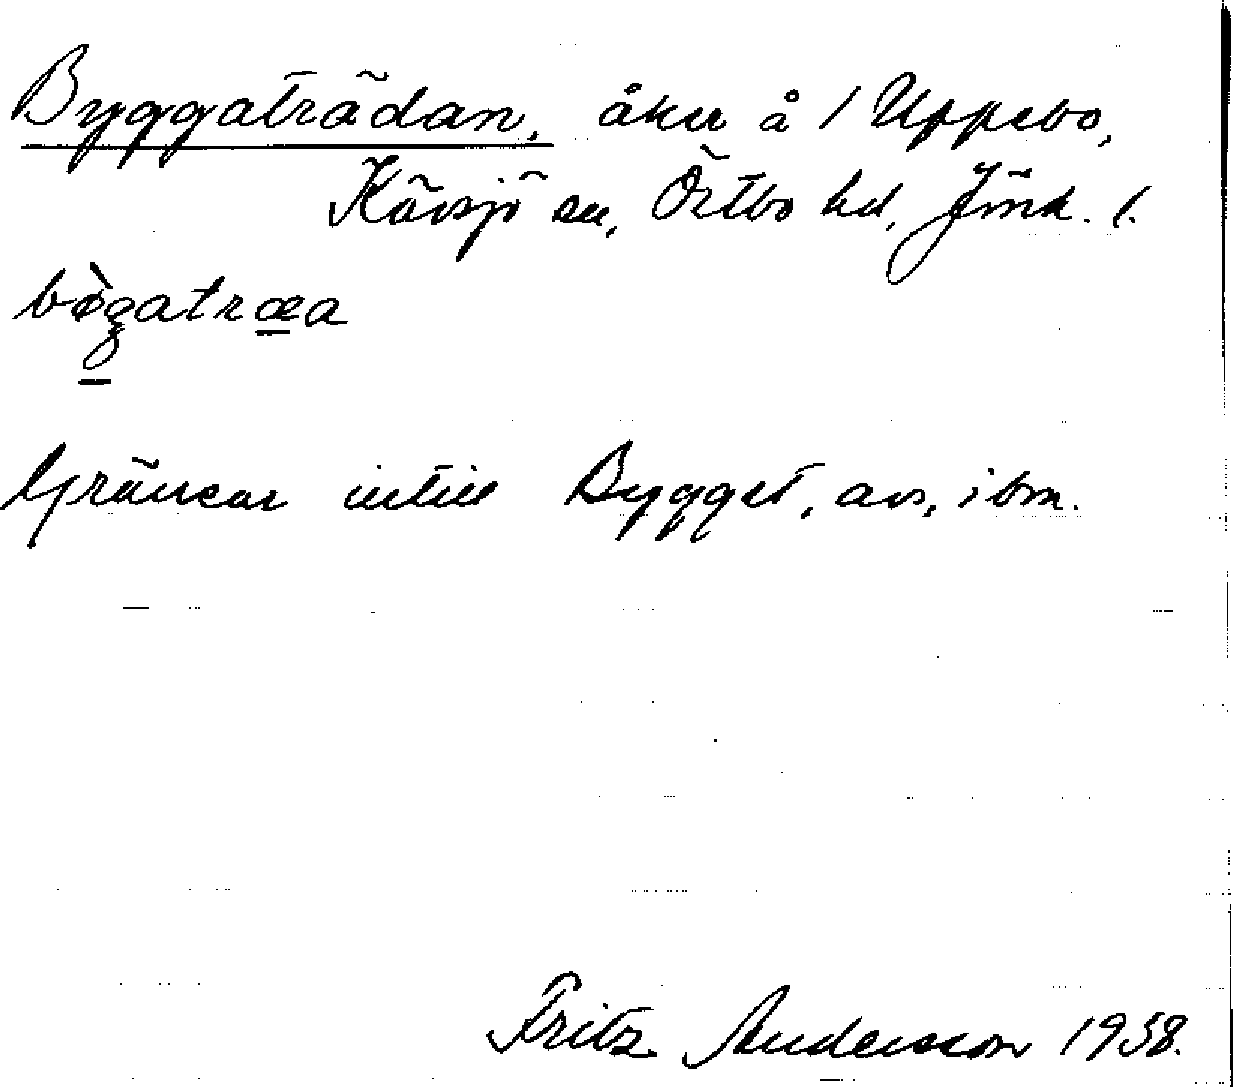 Byggaträdan, åker å 1 Uppebo,
Kävsjö sn, Östbo hd, Jönk. l.
bøgatræa
Gränsar intill Bygget, avs. ibm.
Fritz Andersson 1938.